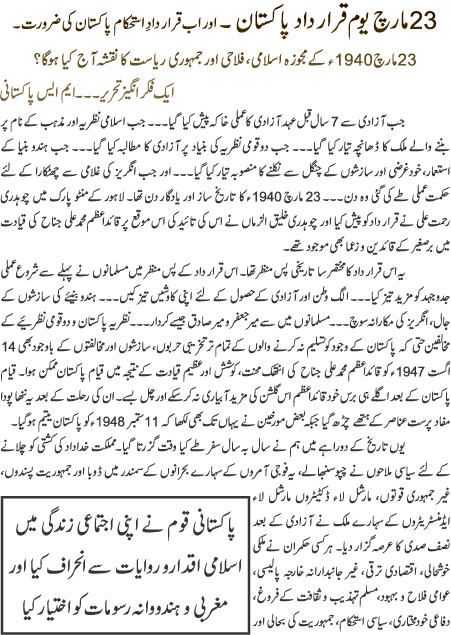 23 مارچ یوم قرار داد پاکستان ۔ اور اب قرار دادِ استحکام پاکستان کی ضرورت ۔
23 مارچ 1940ء کے مجوزہ اسلامی، فلاحی اور جمہوری ریاست کا نقشہ آج کیا ہوگا؟
ایک فکر انگیز تحریر ۔۔۔ ایم ایس پاکستانی
جب آزادی سے 7 سال قبل عہد آزادی کا عملی خاکہ پیش کیا گیا ۔۔۔ جب اسلامی نظریہ اور مذہب کے نام پر
بننے والے ملک کا ڈھانچہ تیار کیا گیا ۔۔۔ جب دو قومی نظریہ کی بنیاد پر آزادی کا مطالبہ کیا گیا ۔۔۔ جب ہندو بنیا کے
استعمار، خود غرضی اور سازشوں کے چنگل سے نکلنے کا منصوبہ تیار کیا گیا ۔۔۔ اور جب انگریز کی غلامی سے چھٹکارا کے لئے
حکمت عملی طے کی گئی وہ دن ۔۔۔ 23 مارچ 1940ء کا تاریخ ساز اور یادگار دن تھا۔ لاہور کے منٹو پارک میں چوہدری
رحمت علی نے قرار داد کو پیش کیا اور چوہدری خلیق الزماں نے اس کی تائید کی اس موقع پر قائد اعظم محمد علی جناح کی قیادت
میں برصغیر کے قائدین و زعما بھی موجود تھے۔
یہ اس قرار داد کا مختصر سا تاریخی پس منظر تھا۔ اس قرار داد کے پس منظر میں مسلمانوں نے پہلے سے شروع عملی
جدوجہد کو مزید تیز کیا ۔۔۔ الگ وطن اور آزادی کے حصول کے لئے اپنی کاوشیں تیز کیں ۔۔۔ ہندو بنیئے کی سازشوں کے
جال، انگریز کی مکارانہ سوچ ۔۔۔ مسلمانوں میں سے میر جعفر و میر صادق جیسے کردار ۔۔۔ نظریہ پاکستان و دو قومی نظریئے کے
مخالفین حتیٰ کہ پاکستان کے وجود کو تسلیم نہ کرنے والوں کے تمام تر تخریبی حربوں، سازشوں اور مخالفتوں کے باوجود بھی 14
اگست 1947ء کو قائد اعظم محمد علی جناح کی انتھک محنت، کوشش اور عظیم قیادت کے نتیجہ میں قیام پاکستان ممکن ہوا۔ قیام
پاکستان کے بعد اگلے ہی برس خود قائد اعظم اس گلشن کی مزید آبیاری نہ کر سکے اور چل بسے۔ ان کی رحلت کے بعد یہ ننھا پودا
مفاد پرست عناصر کے ہتھے چڑھ گیا جبکہ بعض مورخین نے یہاں تک بھی لکھا کہ 11 ستمبر 1948ء کو پاکستان یتیم ہو گیا۔
یوں تاریخ کے دوراہے میں ہم نے سال بہ سال سفر طے کیا وقت گزرتا گیا۔ مملکت خداداد کی کشتی کو چلانے
کے لئے سیاسی ملاحوں نے چپو سنبھالے، یہ فوجی آمروں کے سہارے بحرانوں کے سمندر میں ڈوبا اور جمہوریت پسندوں،
غیر جمہوری قوتوں، مارشل لاء ڈکٹیٹروں مارشل لاء
ایڈمنسٹریٹروں کے سہارے ملک نے آزادی کے بعد
نصف صدی کا عرصہ گزار دیا۔ ہر کسی حکمران نے ملکی
خوشحالی، اقتصادی ترقی، غیر جانبدارانہ خارجہ پالیسی،
عوامی فلاح و بہبود، مسلم تہذیب و ثقافت کے فروغ،
دفاعی خود مختاری، سیاسی استحکام، جمہوریت کی بحالی اور
پاکستانی قوم نے اپنی اجتماعی زندگی میں
اسلامی اقدار و روایات سے انحراف کیا اور
مغربی و ہندووانہ رسومات کو اختیار کیا